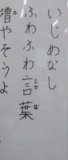 いじめなし
ふわふわ言葉
増やそうよ